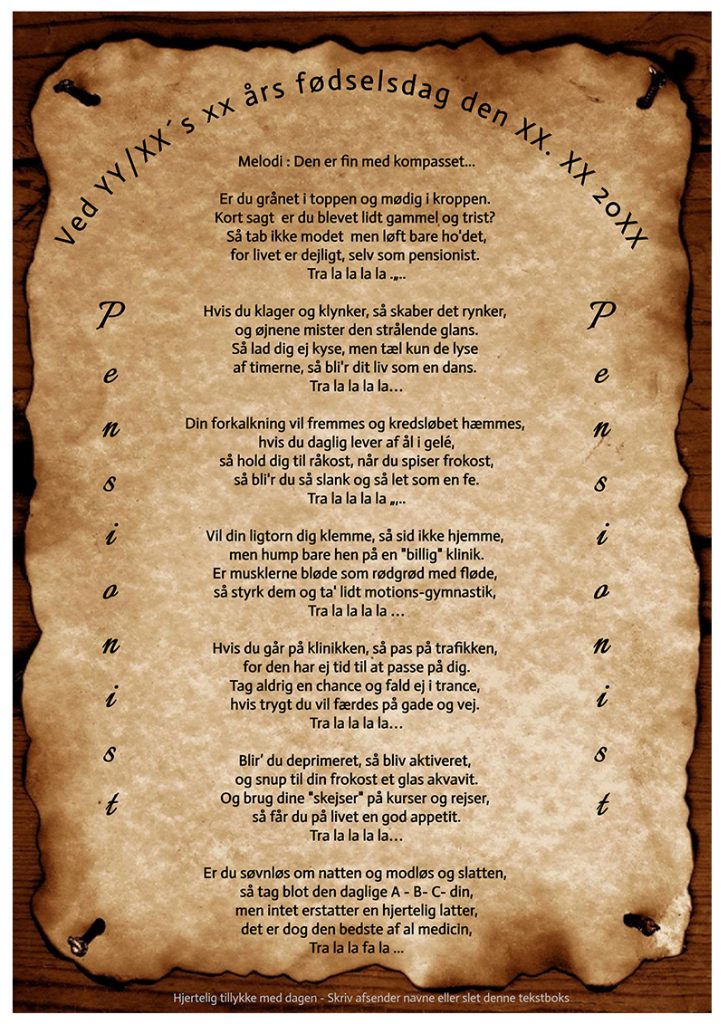 Ved YY/XX´s xx års fødselsdag den XX. XX 20XX
Melodi : Den er fin med kompasset...
Er du grånet i toppen og mødig i kroppen.
Kort sagt er du blevet lidt gammel og trist?
Så tab ikke modet men løft bare ho'det,
for livet er dejligt, selv som pensionist.
Tra la la la la .„..
Hvis du klager og klynker, så skaber det rynker,
og øjnene mister den strålende glans.
Så lad dig ej kyse, men tæl kun de lyse
af timerne, så bli'r dit liv som en dans.
Tra la la la la...
Din forkalkning vil fremmes og kredsløbet hæmmes,
hvis du daglig lever af ål i gelé,
så hold dig til råkost, når du spiser frokost,
så bli'r du så slank og så let som en fe.
Tra la la la la „,..
Vil din ligtorn dig klemme, så sid ikke hjemme,
men hump bare hen på en "billig" klinik.
Er musklerne bløde som rødgrød med fløde,
så styrk dem og ta' lidt motions-gymnastik,
Tra la la la la ...
Hvis du går på klinikken, så pas på trafikken,
for den har ej tid til at passe på dig.
Tag aldrig en chance og fald ej i trance,
hvis trygt du vil færdes på gade og vej.
Tra la la la la...
Blir´ du deprimeret, så bliv aktiveret,
og snup til din frokost et glas akvavit.
Og brug dine "skejser" på kurser og rejser,
så får du på livet en god appetit.
Tra la la la la...
Er du søvnløs om natten og modløs og slatten,
så tag blot den daglige A - B- C- din,
men intet erstatter en hjertelig latter,
det er dog den bedste af al medicin,
Tra la la fa la ...
Pensionist
Pensionist
Hjertelig tillykke med dagen - Skriv afsender navne eller slet denne tekstboks